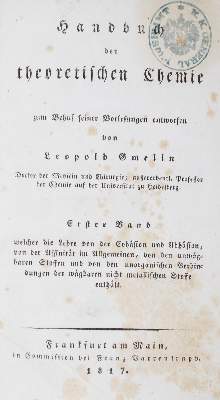 Handbuch
der
theoretischen Chemie
zum Behuf seiner Vorlesungen entworfen
von
Leopold Gmelin
Doctor der Medicin und Chirurgie, ausserordentl. Professor
der Chemie auf der Universität zu Heidelberg.
Erster Band
welcher die Lehre von der Cohäsion und Adhäsion,
von der Affinität im Allgemeinen, von den unwäg-
baren Stoffen und von den unorganischen Verbin-
dungen der wägbaren nicht metallischen Stoffe
enthält.
Frankfurt am Main,
in Commission bei Franz Varrentrapp.
1817.